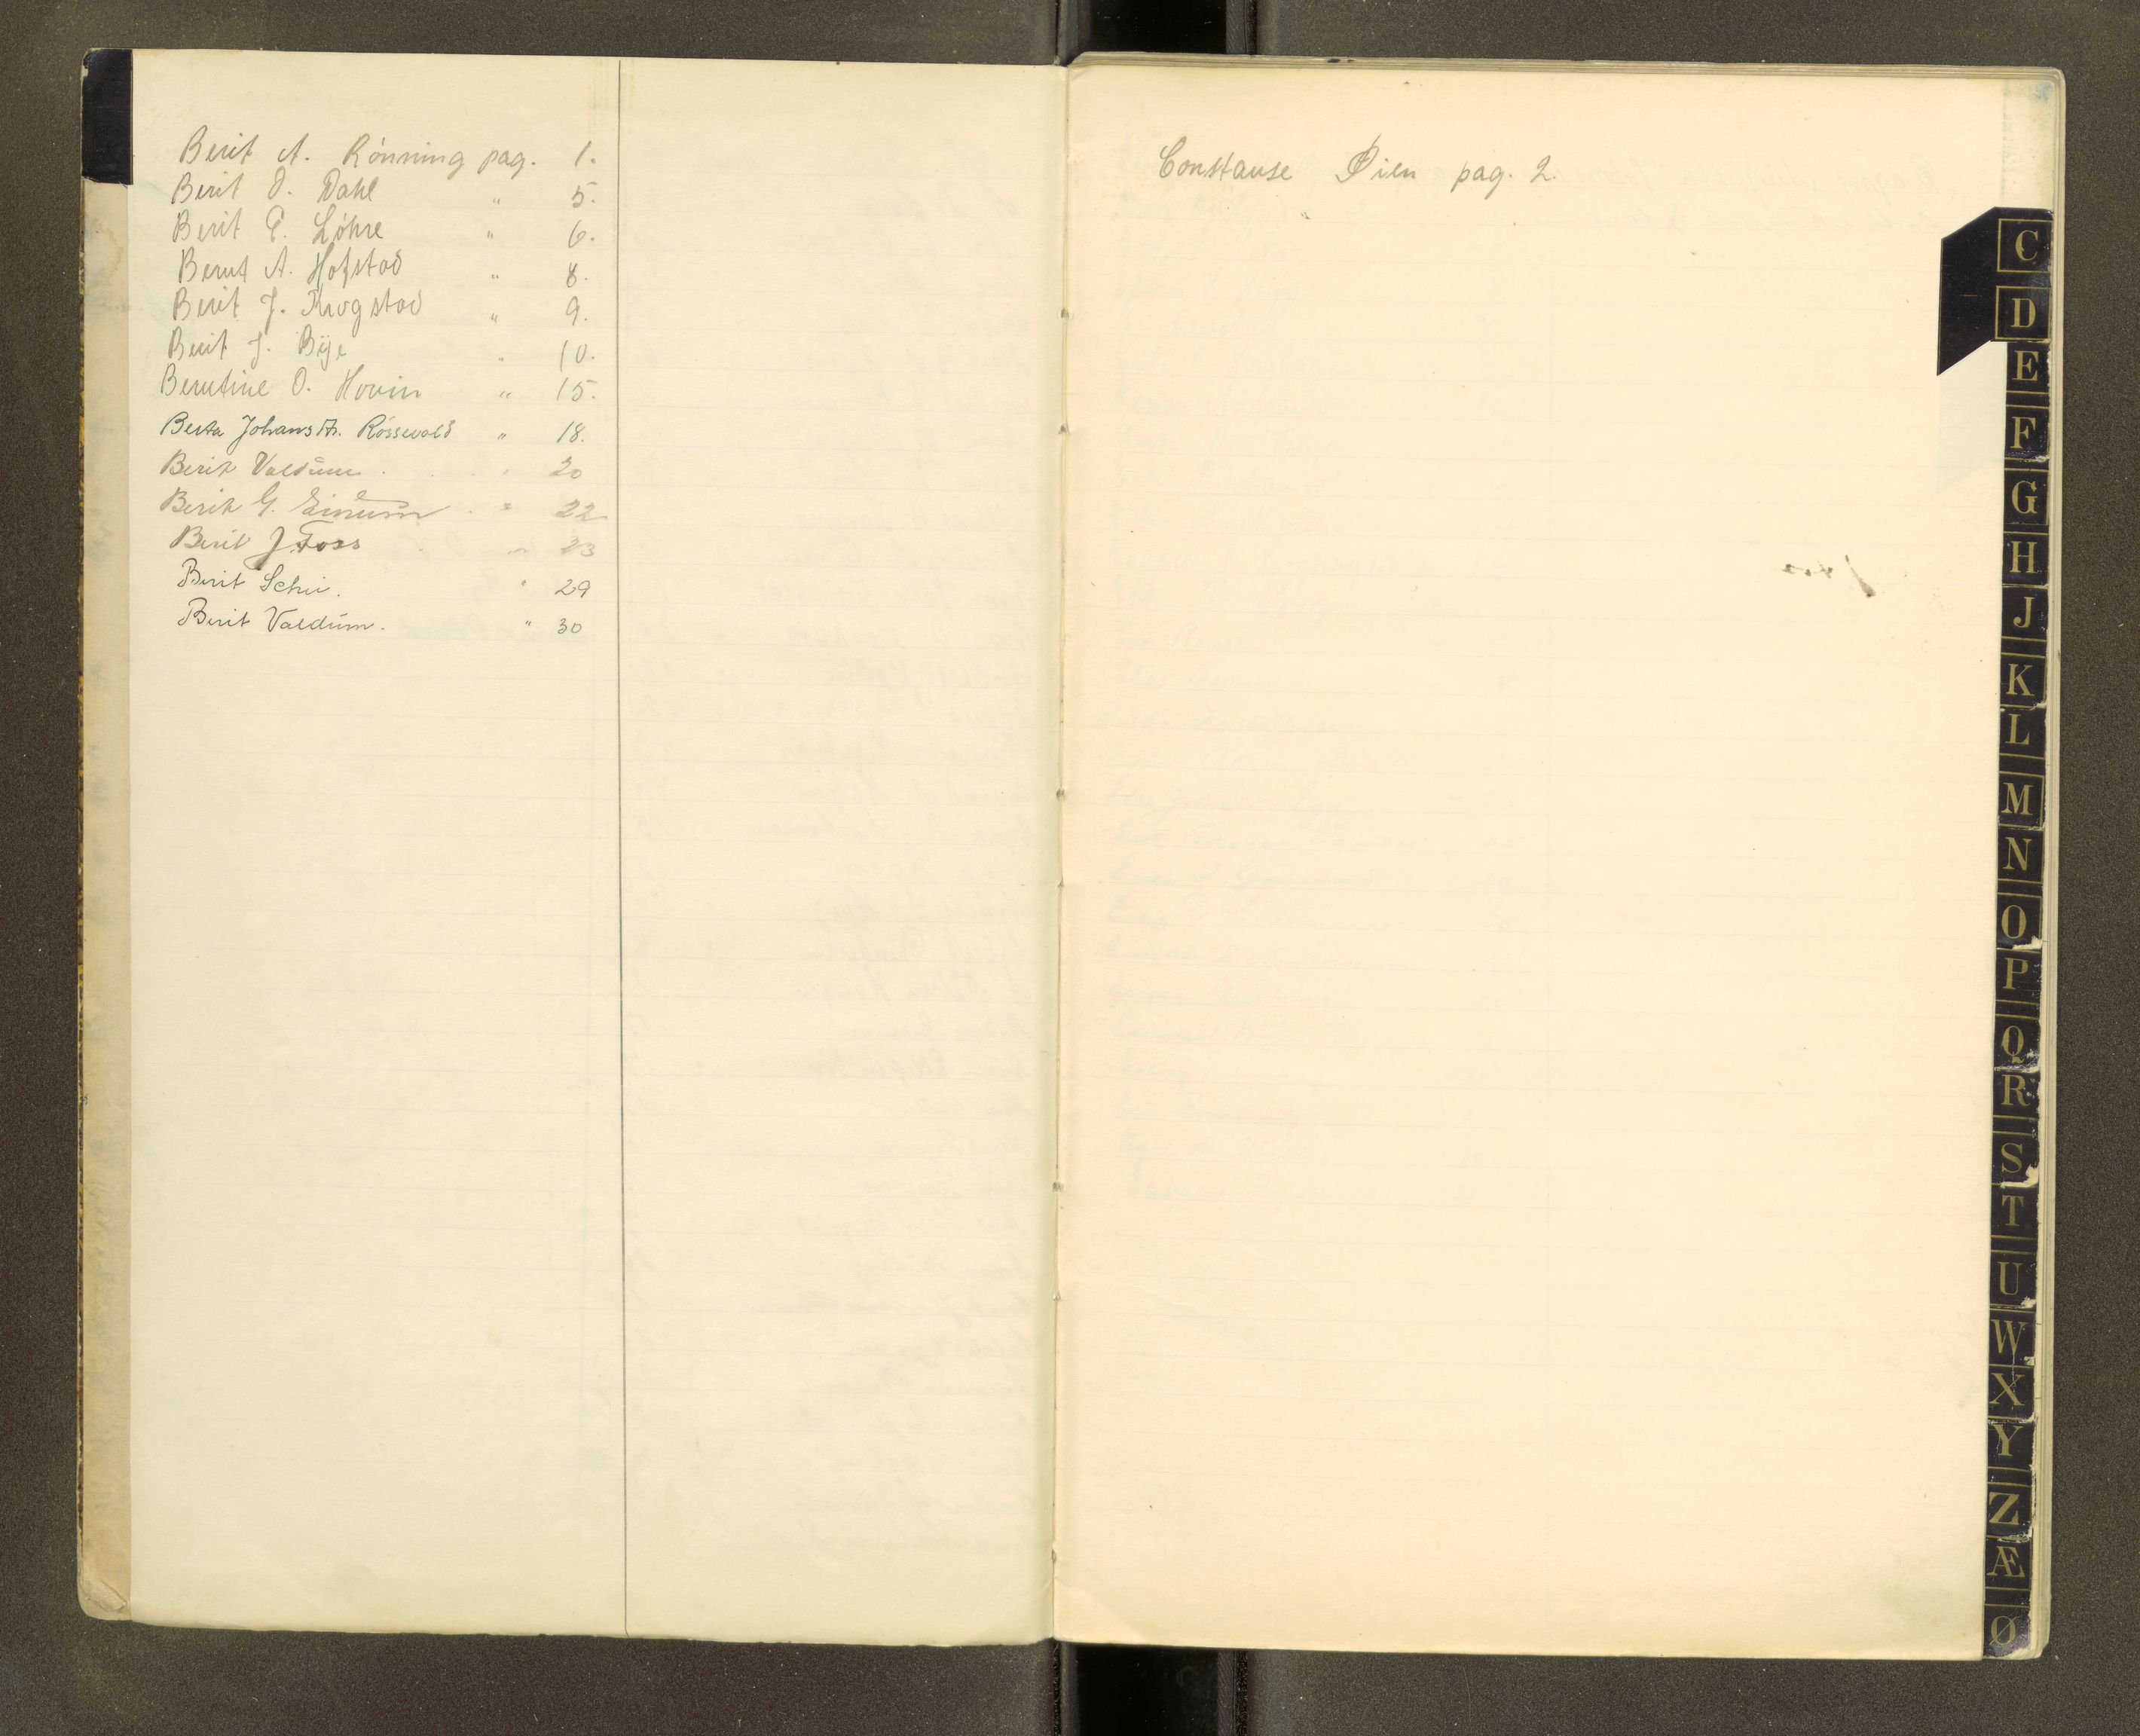 Berit A. Rønning pag. 1.
Berit O. Dahl " 5.
Berit P. Løhre " 6.
Berut A. Hofstad " 8.
Berit J. Krogstad " 9.
Berit J. Bye " 10.
Berutine O. Hovin " 15.
Berta Johansdtr. Rossevold " 18.
Berit Valdum " 20
Berit G. Einum " 22
Berit J. Foss " 23
Berit Schei. " 29
Berit Valdum. " 30
Constanse Øien pag. 2.
C
D
E
F
G
H
J
K
L
M
N
O
P
Q
R
S
T
U
W
X
Y
Z
Æ
Ø